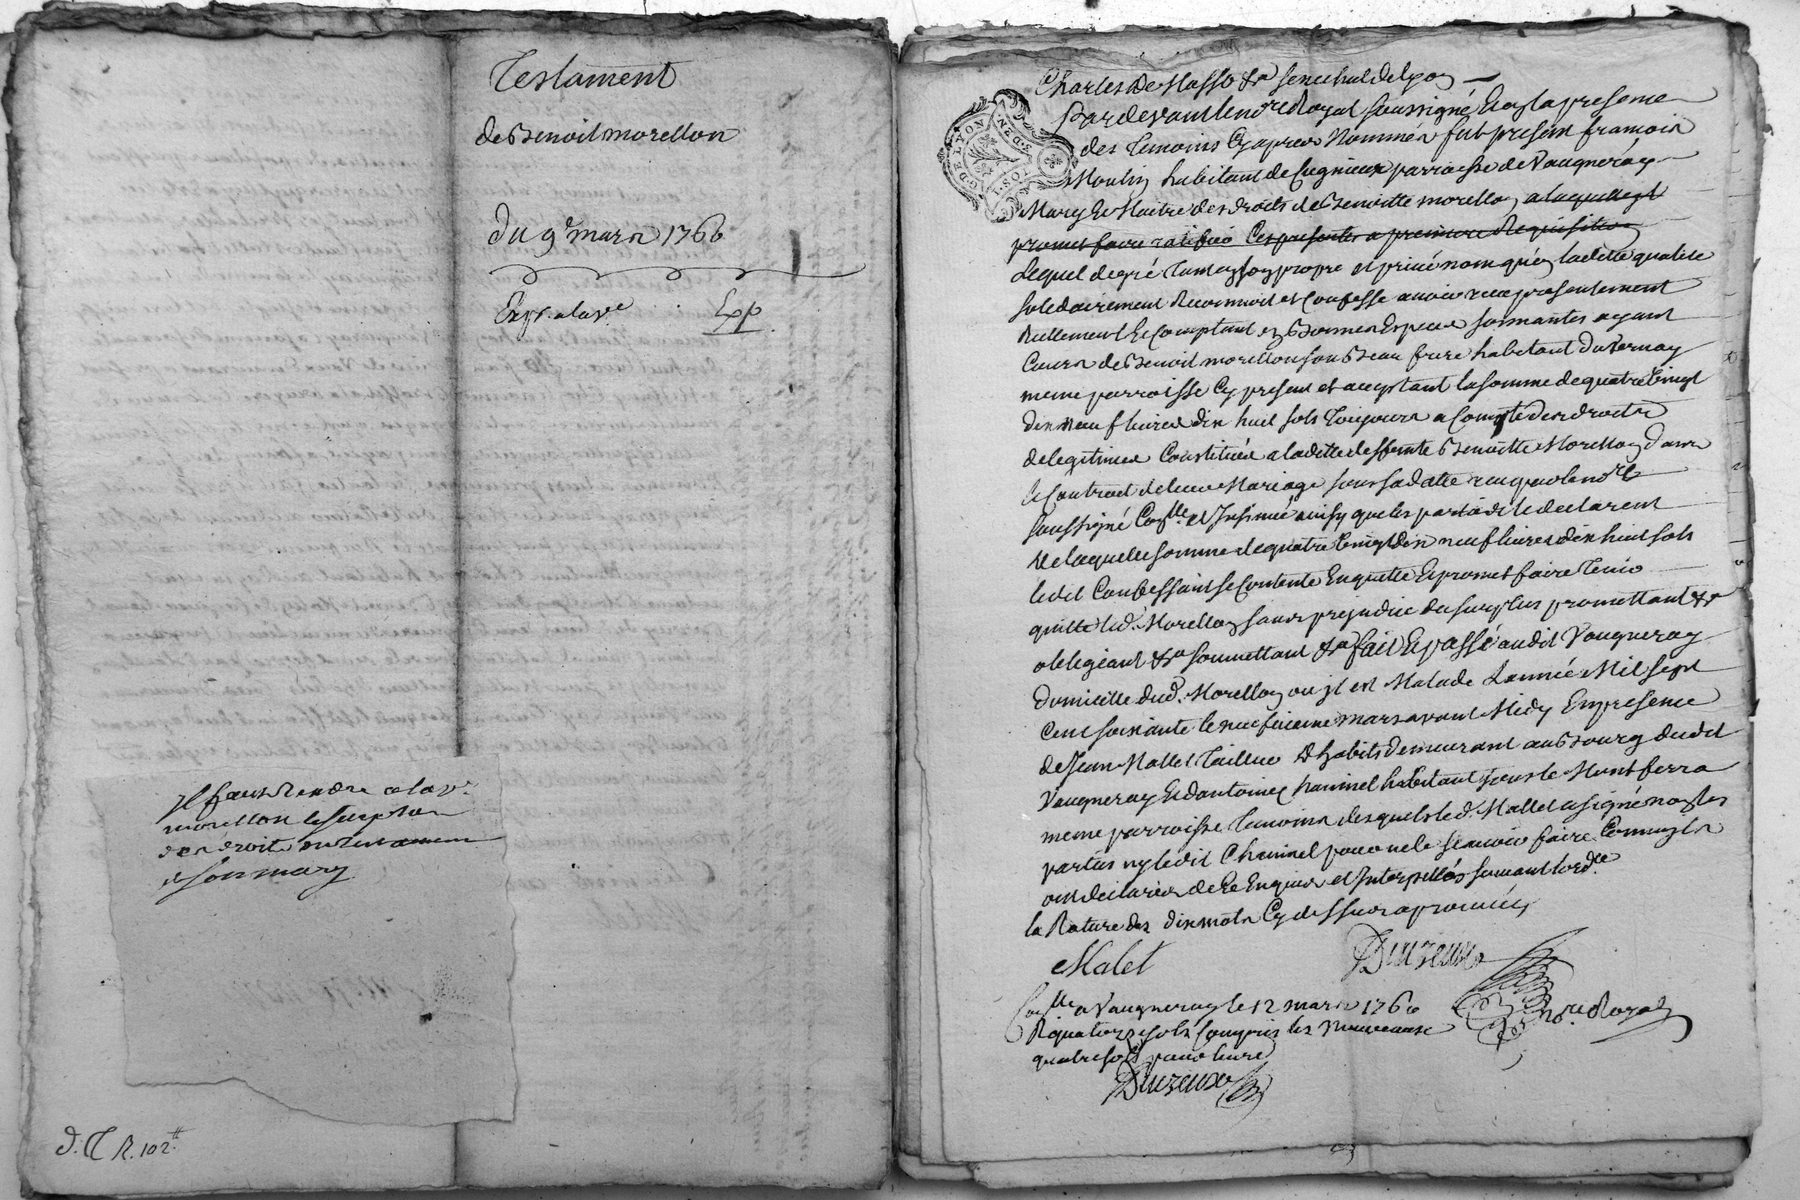 Testament
de Benoit morellon
du 9e mars 1760
Exp. a la ve Exp
Il faut Rendre a la ve
morellon le surplus
des droits du Testament
de son mary
d. T R. 102 tt
Charles de Masso &a senechal de Lyon
G. DE LYON
Pardevant le nore Royal soussigné En la presence
des Temoins Cy apres Nommés fut present francois
Moulin habitant de parroisse de Vaugneray
Mary Et Maitre des droits de Benoitte morellon a laquelle il
promet faire ratiffier Ces presentes a premiere Requisition
Lequel de gré Tant en son propre et privé nom qu'en laditte qualité
solidairement Reconnoit et Confesse avoir reçu presentement
Reellement Et Comptant en Bonnes Especes sonnantes ayant
Cours de Benoit morellon son Beau frere habitant du Vernay
meme parroisse Cy present et acceptant la somme de quatre Vingt
dix neuf livres dix huit sols Toujours a Compte des droits
de legitimes Constitués a laditte deffunte Benoitte Morellon dans
le Contrat de leur Mariage sous sa datte reçu par le nore
soussigné Conlle et Insinué ainsy que les parties le declarent
De laquelle somme de quatre Vingt dix neuf livres dix huit sols
ledit Confessant se Contente En quitte Et promet faire Tenir
quitte led. Morellon sans prejudice du surplus promettant &a
obligeant &a soumettant &a fait Et passé audit Vaugneray
domicille dud. Morellon ou il est Malade L'année Mil sept
Cent soixante le neuf mars avant Midy En presence
de Jean Mallet Tailleur D'habits demeurant au Bourg dudit
Vaugneray Et d'antoine Chaninel habitant sous le Mont ferra
meme parroisse Temoins desquels led. Mallet a signé non les
parties ny ledit Chaninel pour ne le sçavoir faire Comm'ils
ont declarés de Ce Enquis et Interpellés suivant l'ordce
la Rature des dix mots Cy dessus approuvée
Malet
Duzeure
nore Royal
Conlle a Vaugneray le 12 mars 1760
R quatorze sols Compris les Nouveaux
quatre sols pour livre
Duzeure